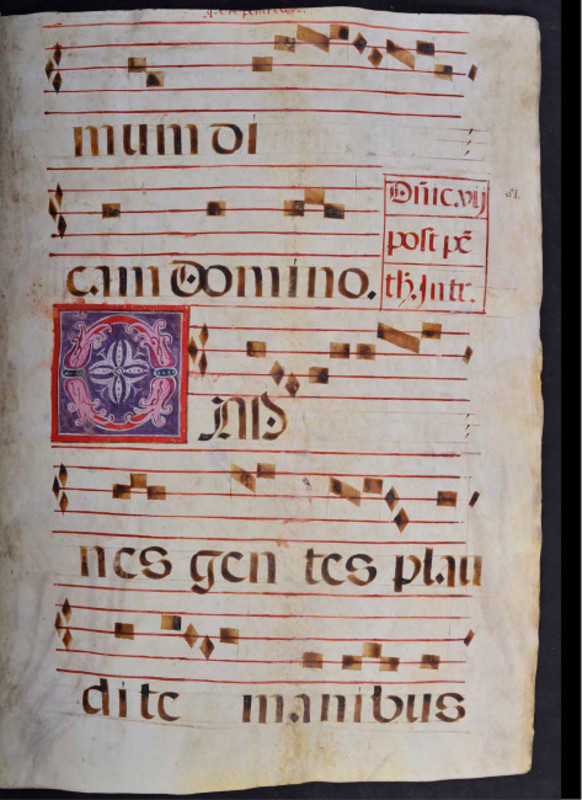 mum di
cam Domino.
Dñic. vij
post pẽ
th. Intr.
51.
OM
nes gen tes plau
di te manibus